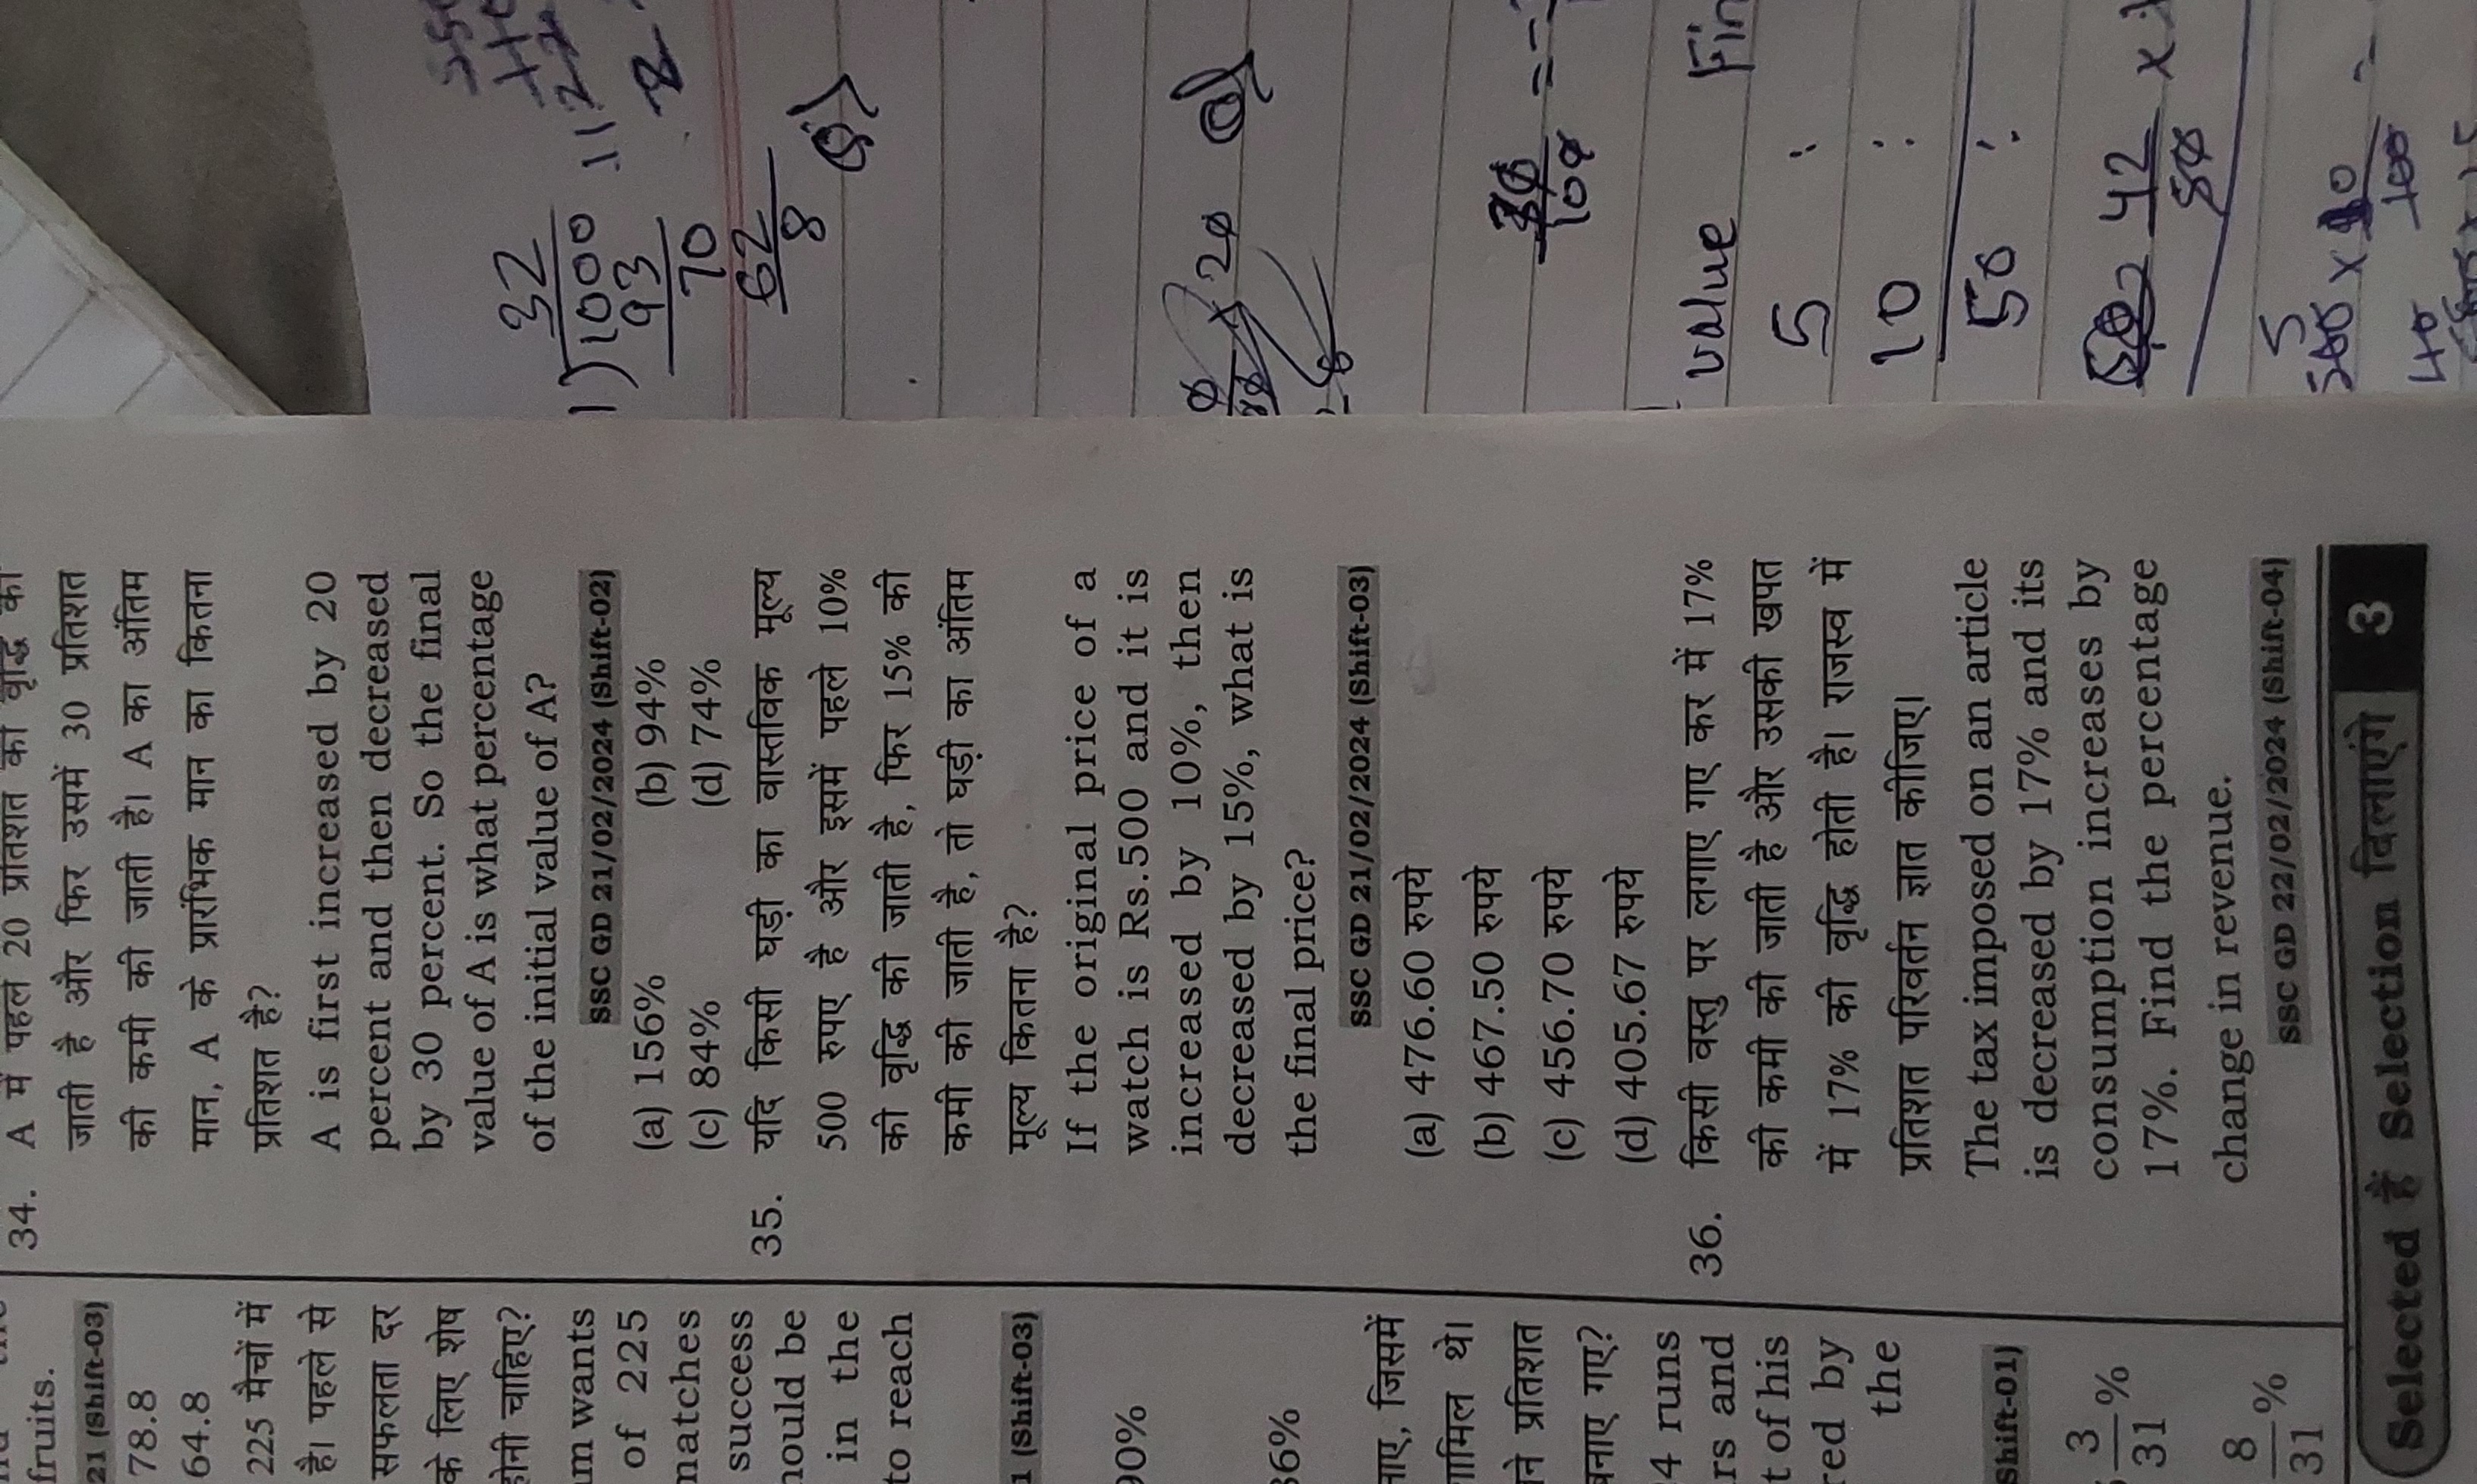 fruits.
21 (Shift-03)
78.8
64.8
225 मैचों में
है। पहले से
सफलता दर
के लिए शेष
होनी चाहिए?
am wants
of 225
matches
success
hould be
in the
to reach
1 (Shift-03)
90%
36%
नाए, जिसमें
शामिल थे।
ने प्रतिशत
बनाए गए?
4 runs
rs and
t of his
red by
the
Shift-01)
3/31 %
8/31 %
34. A में पहले 20 प्रतिशत की वृद्धि की
जाती है और फिर उसमें 30 प्रतिशत
की कमी की जाती है। A का अंतिम
मान, A के प्रारंभिक मान का कितना
प्रतिशत है?
A is first increased by 20
percent and then decreased
by 30 percent. So the final
value of A is what percentage
of the initial value of A?
SSC GD 21/02/2024 (Shift-02)
(a) 156% (b) 94%
(c) 84% (d) 74%
35. यदि किसी घड़ी का वास्तविक मूल्य
500 रुपए है और इसमें पहले 10%
की वृद्धि की जाती है, फिर 15% की
कमी की जाती है, तो घड़ी का अंतिम
मूल्य कितना है?
If the original price of a
watch is Rs.500 and it is
increased by 10%, then
decreased by 15%, what is
the final price?
SSC GD 21/02/2024 (Shift-03)
(a) 476.60 रुपये
(b) 467.50 रुपये
(c) 456.70 रुपये
(d) 405.67 रुपये
36. किसी वस्तु पर लगाए गए कर में 17%
की कमी की जाती है और उसकी खपत
में 17% की वृद्धि होती है। राजस्व में
प्रतिशत परिवर्तन ज्ञात कीजिए।
The tax imposed on an article
is decreased by 17% and its
consumption increases by
17%. Find the percentage
change in revenue.
SSC GD 22/02/2024 (Shift-04)
Selected हैं Selection दिलाएंगे 3
32
1)1000
93
70
62
8
× 20
30/100 = -
value Fin
5 :
10 :
50 :
42/50 ×
5
500 × 10/100 =
40